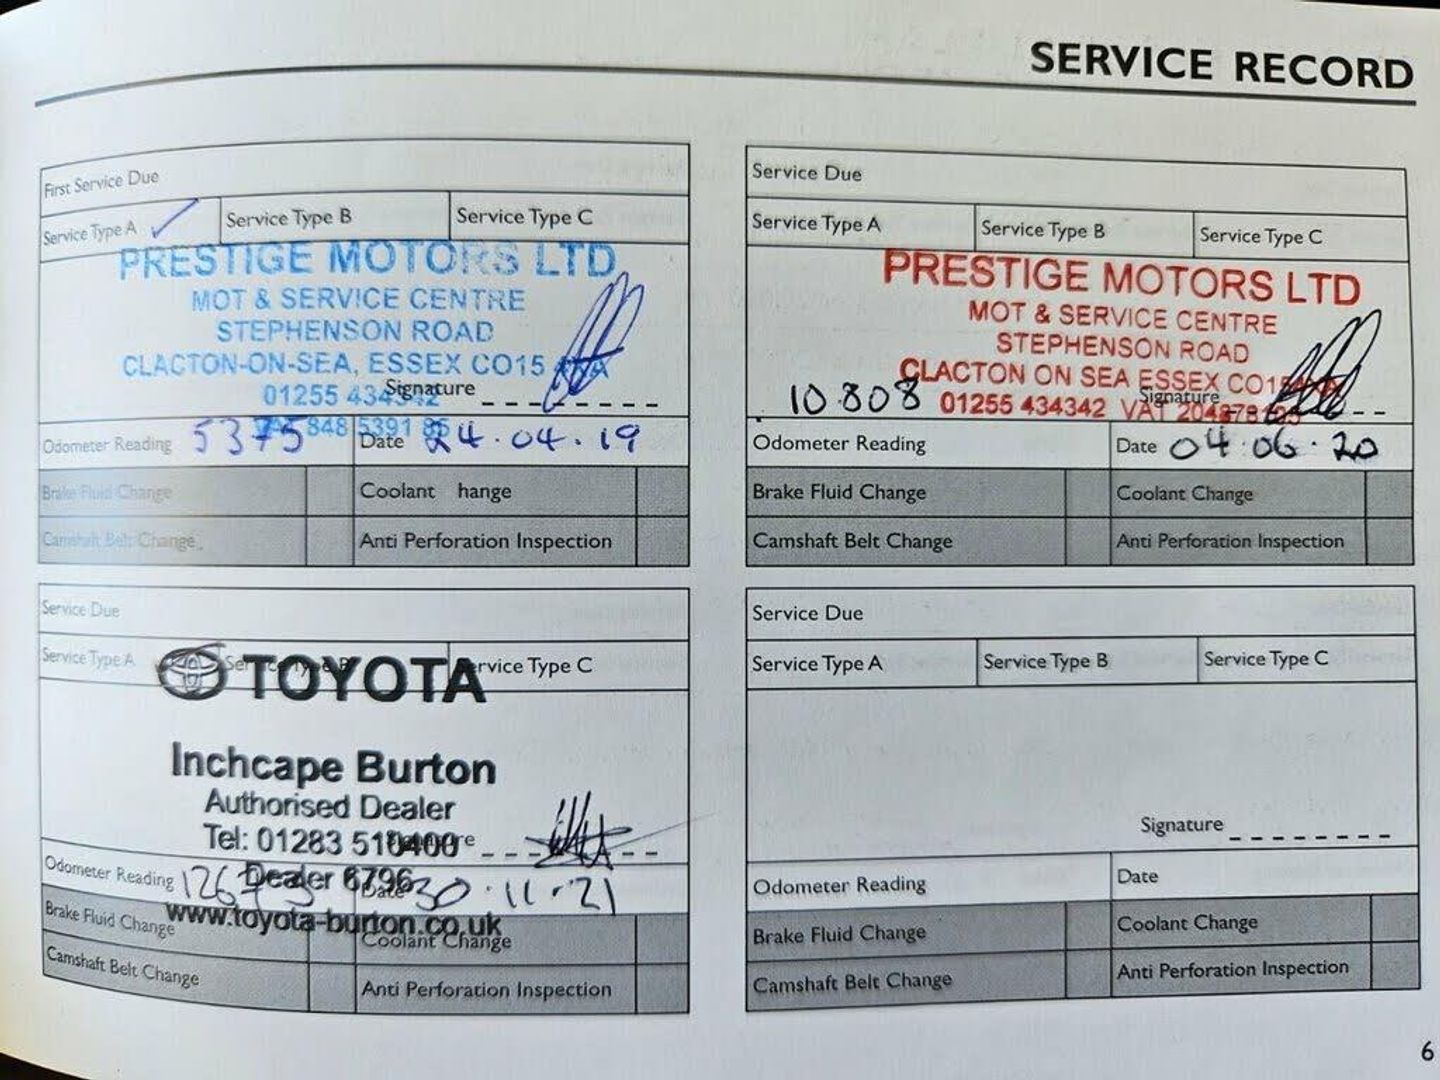 SERVICE RECORD
First Service Due
Service Type A Service Type B Service Type C
PRESTIGE MOTORS LTD
MOT & SERVICE CENTRE
STEPHENSON ROAD
CLACTON-ON-SEA, ESSEX CO15
01255 434342
Signature
848 5391 86
Odometer Reading 5375 Date 24.04.19
Brake Fluid Change Coolant hange
Camshaft Belt Change Anti Perforation Inspection
Service Due
Service Type A Service Type B Service Type C
PRESTIGE MOTORS LTD
MOT & SERVICE CENTRE
STEPHENSON ROAD
CLACTON ON SEA ESSEX CO15
10.808 01255 434342 VAT
Signature
Odometer Reading Date 04.06.20
Brake Fluid Change Coolant Change
Camshaft Belt Change Anti Perforation Inspection
Service Due
Service Type A Service Type B Service Type C
TOYOTA
Inchcape Burton
Authorised Dealer
Tel: 01283 510400
Signature
Dealer 6796
Odometer Reading Date 30.11.21
www.toyota-burton.co.uk
Brake Fluid Change Coolant Change
Camshaft Belt Change Anti Perforation Inspection
Service Due
Service Type A Service Type B Service Type C
Signature
Odometer Reading Date
Brake Fluid Change Coolant Change
Camshaft Belt Change Anti Perforation Inspection
6